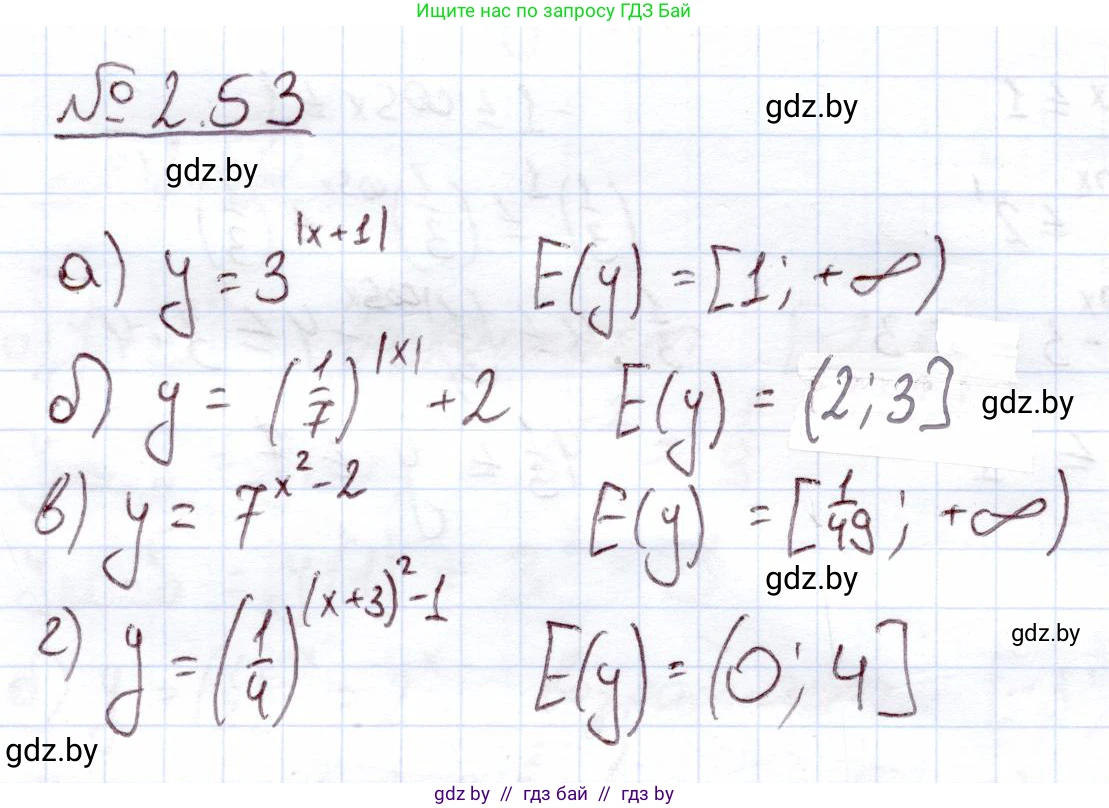 Ищите нас по запросу ГДЗ Бай
№ 2.53
gdz.by
gdz.by
а) y = 3^|x+1| E(y) = [1; +∞)
б) y = (1/7)^|x| + 2 E(y) = (2; 3]
gdz.by
в) y = 7^x²-2 E(y) = [1/49; +∞)
gdz.by
г) y = (1/4)^(x+3)²-1 E(y) = (0; 4]
gdz.by
gdz.by
gdz.by // гдз бай // гдз by